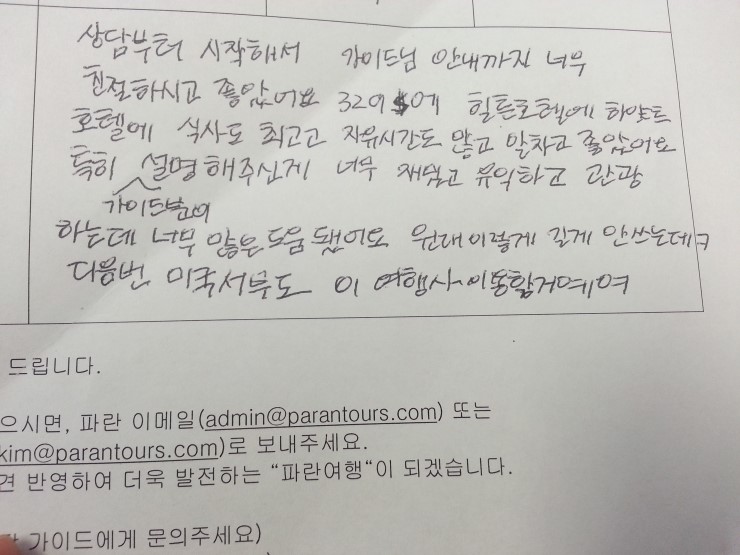 상담부터 시작해서 가이드님 안내까지 너무
친절하시고 좋았어요 320$에 힐튼호텔에 하얏트
호텔에 식사도 최고고 자유시간도 많고 알차고 좋았어요
특히 설명해주신게 너무 재밌고 유익하고 관광
가이드님의
하는데 너무 많은 도움됐어요 원래 이렇게 길게 안쓰는데ㅋ
다음번 미국서부도 이 여행사 이동할거예여
드립니다.
으시면, 파란 이메일(admin@parantours.com) 또는
kim@parantours.com)로 보내주세요.
견 반영하여 더욱 발전하는 “파란여행“이 되겠습니다.
가이드에게 문의주세요)